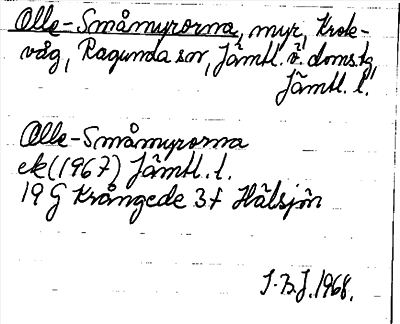 Olle-Småmyrorna, myr, Krok-
våg, Ragunda sn, Jämtl. ö. doms.tg,
Jämtl. l.
Olle-Småmyrorna
ek (1967) Jämtl. l.
19 G Krångede 3 f Hälsjön
J.B.J. 1968.